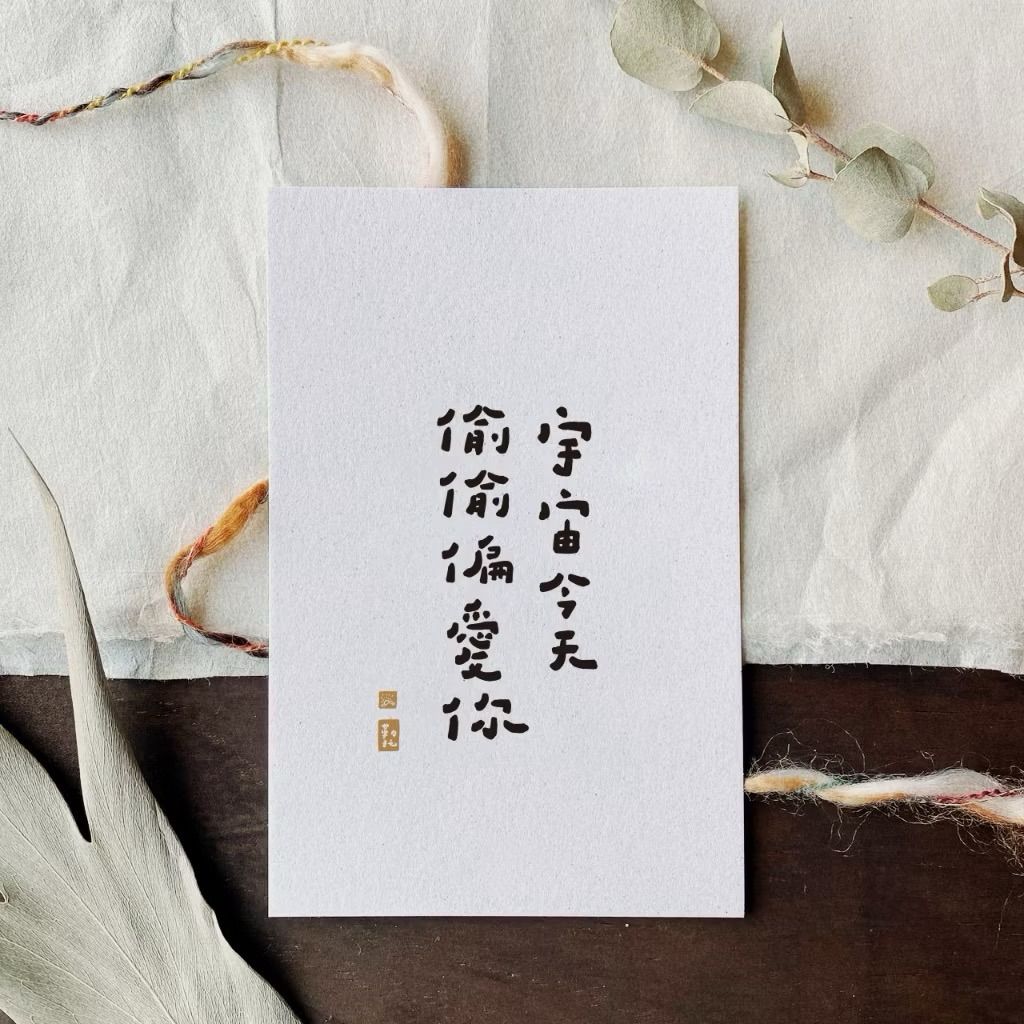 宇宙今天
偷偷偏愛你